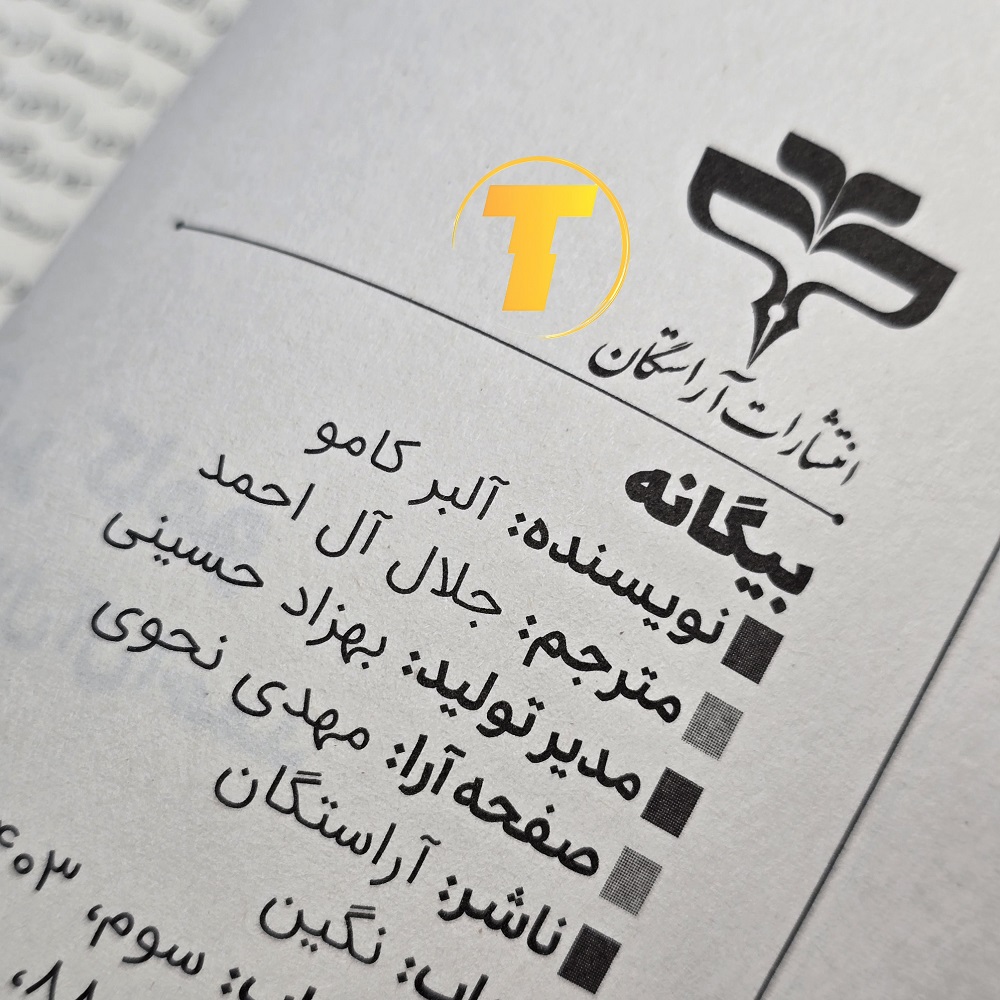 انتشارات آراستگان
بیگانه
نویسنده: آلبر کامو
مترجم: جلال آل احمد
مدیر تولید: بهزاد حسینی
صفحه آرا: مهدی نحوی
ناشر: آراستگان
نگین
سوم،
T